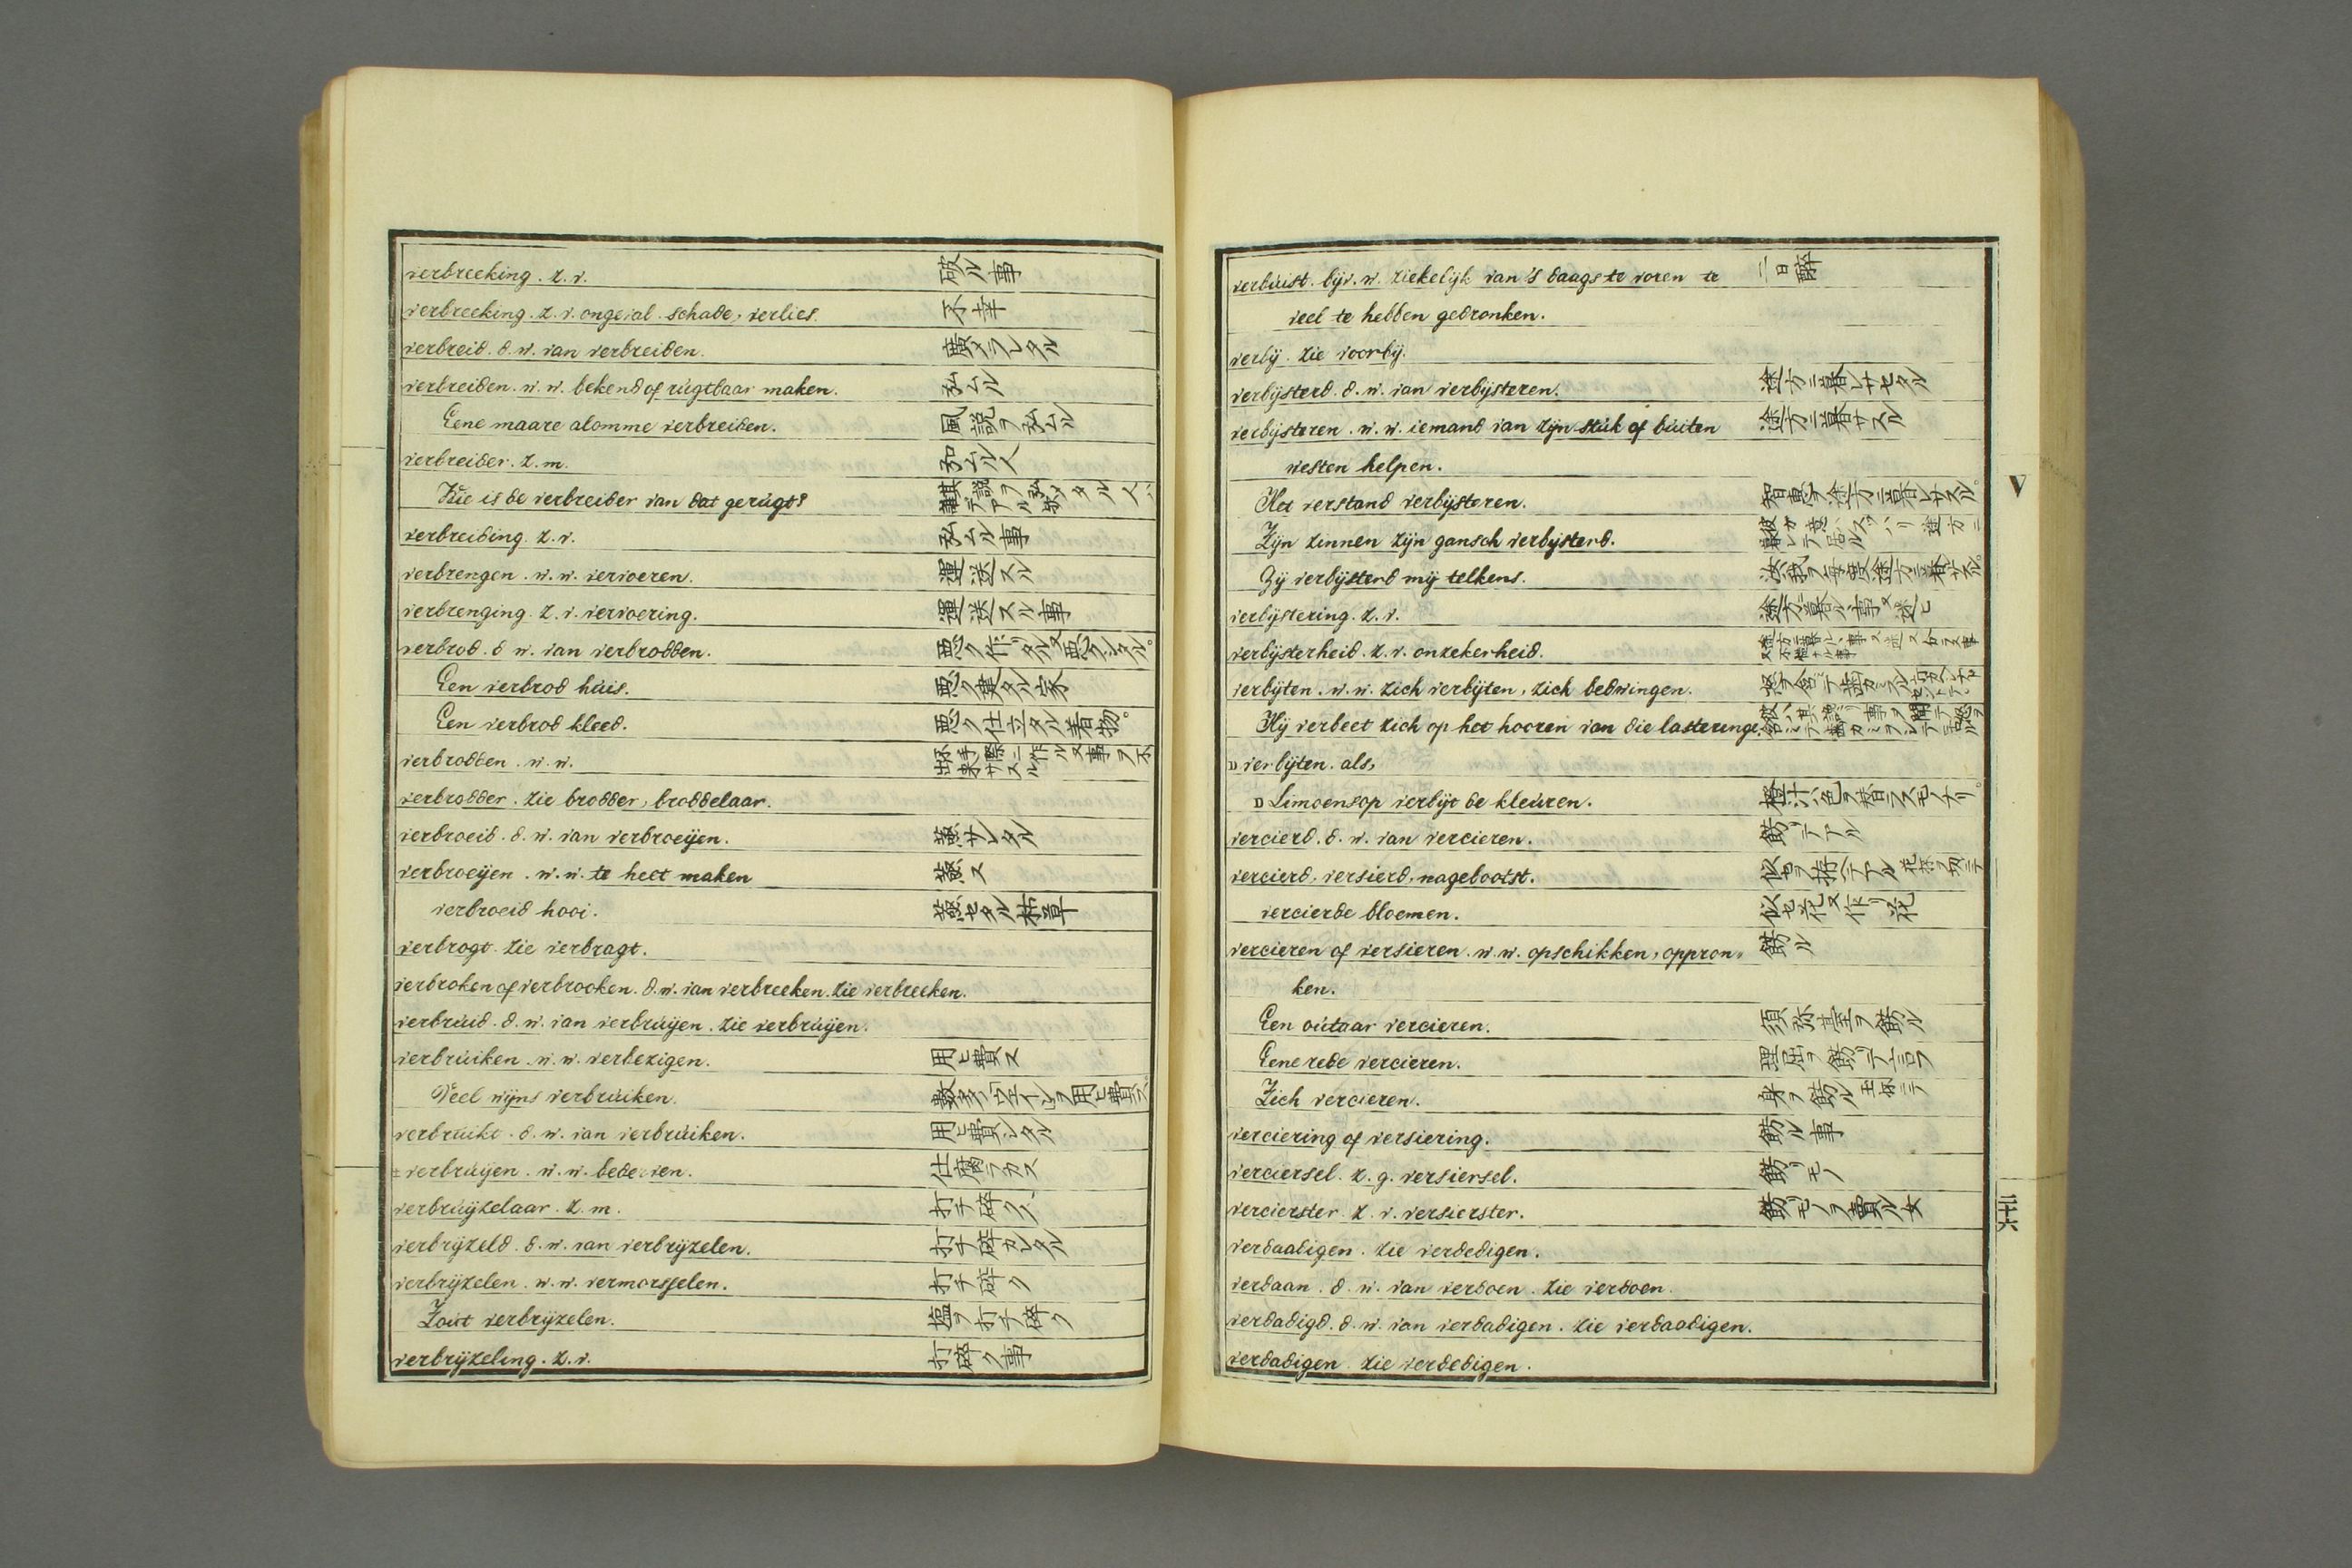 verbreeking. z. v. 破ル事
verbreeking. z. v. ongeval. schade, verlies. 不幸
verbreid. d. w. van verbreiden. 廣メラレタル
verbreiden. w. w. bekend of rugtbaar maken. 弘ムル
Eene maare alomme verbreiden. 風説ヲ弘ムル
verbreider. z. m. 弘ムル人
Wie is de verbreider van dat gerugt?
verbreiding. z. v. 弘ムル事
verbrengen. w. w. vervoeren. 運送スル
verbrenging. z. v. vervoering. 運送スル事
verbrod. d w. van verbrodden.
Een verbrod huis. 悪ク建タル家
Een verbrod kleed. 悪ク仕立タル着物。
verbrodden. w. w.
verbrodder. zie brodder, broddelaar.
verbroeid. d. w. van verbroeijen. 蒸サレタル
verbroeijen. w. w. te heet maken 蒸ス
verbroeid hooi. 蒸セタル秣草
verbrogt. zie verbragt.
verbroken of verbrooken. d. w. van verbreeken. zie verbreeken.
verbruid. d. w. van verbruijen. zie verbruijen.
verbruiken. w. w. verbezigen. 用ヒ費ス
Veel wijns verbruiken.
verbruikt. d. w. van verbruiken. 用ヒ費シタル
± verbruijen. w. w. bederven. 仕腐ラカス
verbruijzelaar. z. m. 打チ碎ク人
verbrijzeld. d. w. van verbrijzelen. 打チ碎カレタル
verbrijzelen. w. w. vermorsselen. 打チ碎ク
Zout verbrijzelen. 塩ヲ打チ碎ク
verbrijzeling. z. v. 打碎ク事
verbuist. bijv. w. ziekelijk van 's daags te voren te 二日醉
veel te hebben gedronken.
verbij. zie voorbij.
verbijsterd. d. w. van verbijsteren. 途方ニ暮レサセタル
verbijsteren. w. w. iemand van zijn stuk of buiten 途方ニ暮サスル
westen helpen.
Het verstand verbijsteren. 智恵ヲ途方ニ暮レサスル。
Zijn zinnen zijn gansch verbijsterd.
Zij verbijsterd mij telkens.
verbijstering. z. v.
verbijsterheid. z. v. onzekerheid.
verbijten. w. w. zich verbijten, zich bedwingen.
Hij verbeet zich op het hooren van die lasteringe.
D verbijten. als,
D Limoensop verbijt de kleuren.
vercierd. d. w. van vercieren. 餝リテアル
vercierd, versierd, nagebootst.
vercierde bloemen. 似セ花又作リ花
vercieren of versieren. w. w. opschikken, oppron= 餝ル
ken.
Een outaar vercieren. 須弥臺ヲ餝ル
Eene rede vercieren. 理屈ヲ餝リテ言フ
Zich vercieren. 身ヲ餝ル
verciering of versiering. 餝ル事
verciersel. z. g. versiersel. 餝リモノ
vercierster. z. v. versierster. 餝リモノヲ賣ル女
verdaadigen. zie verdedigen.
verdaan. d. w. van verdoen. zie verdoen.
verdadigd. d. w. van verdadigen. zie verdaadigen.
verdadigen. zie verdedigen.
V